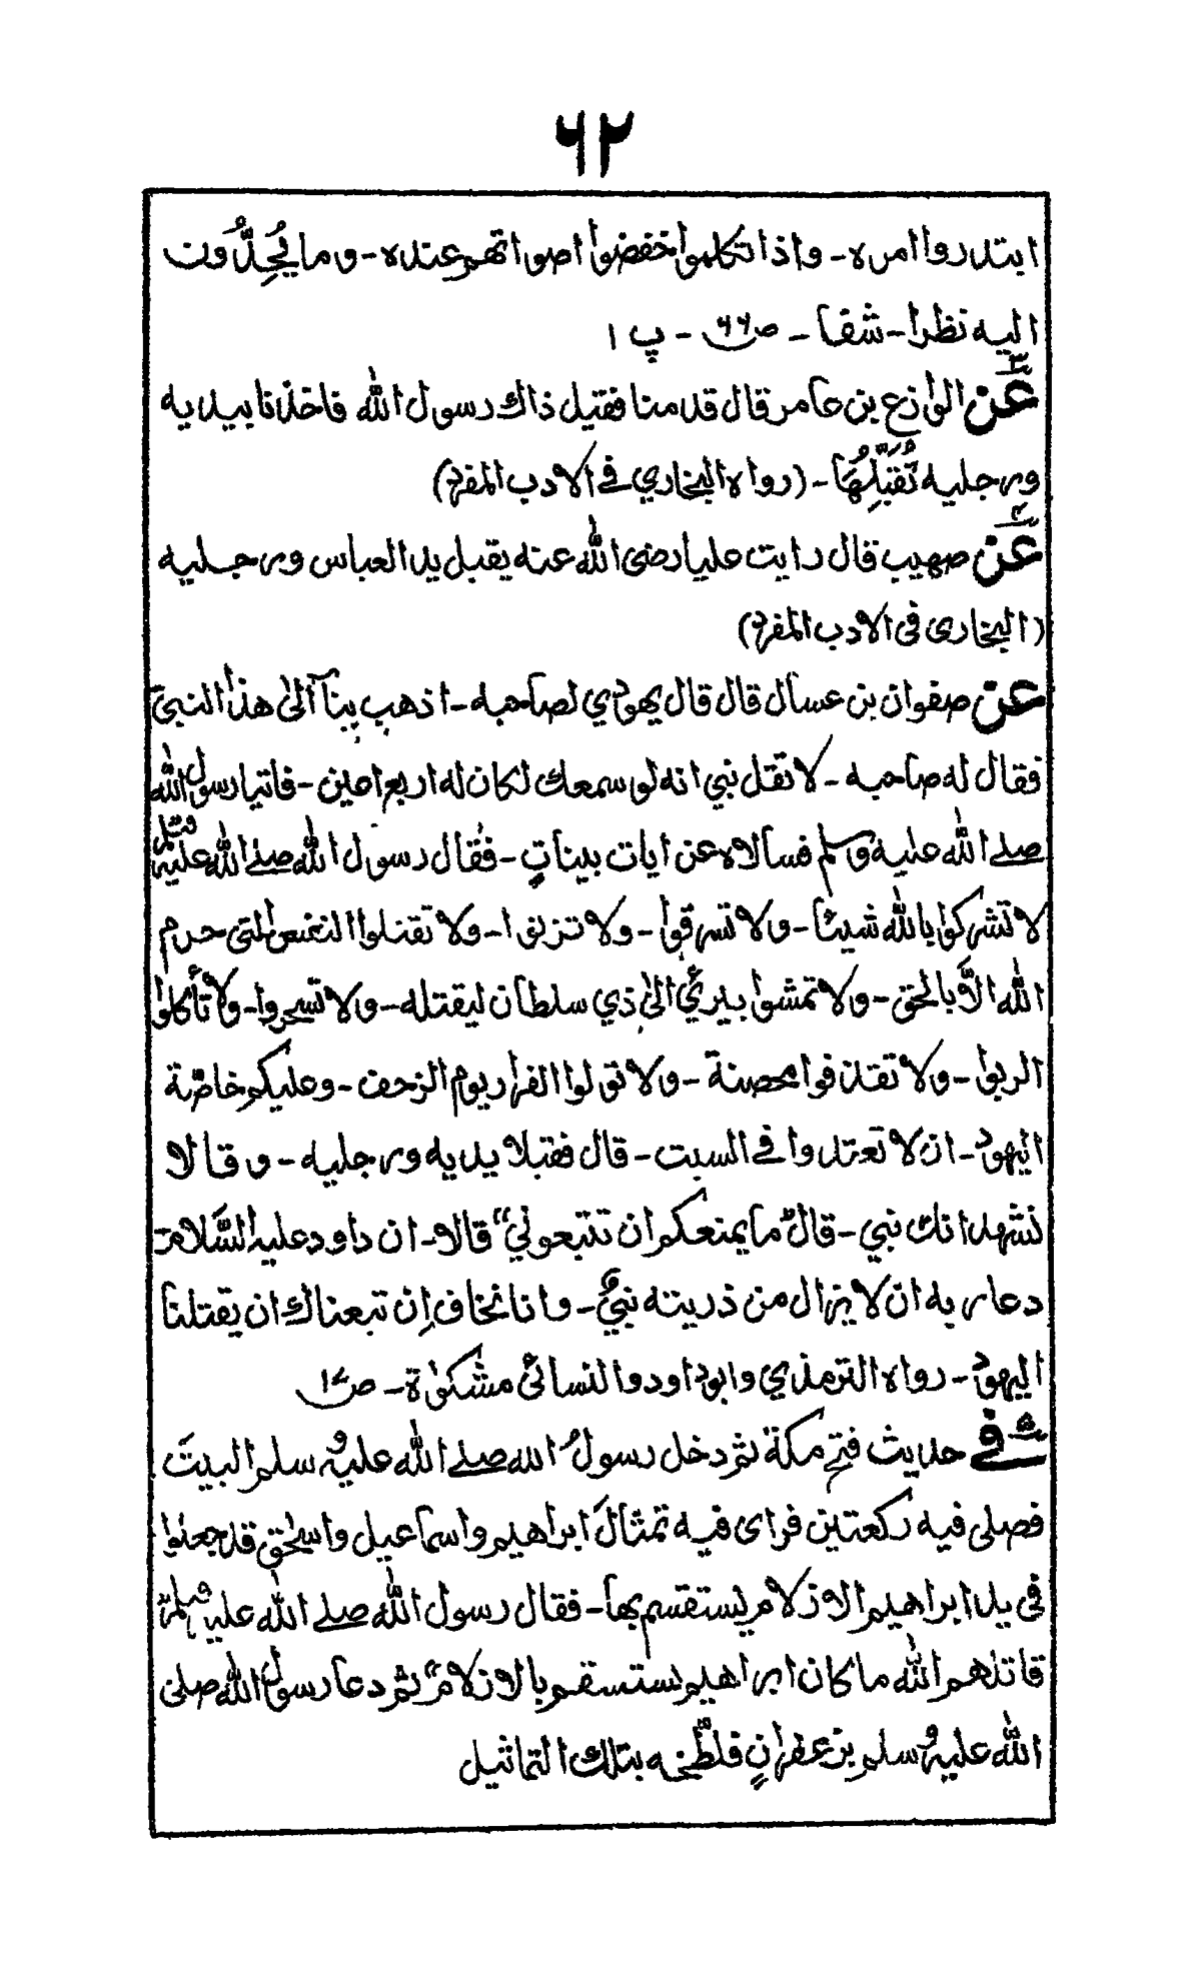 ٦٢
ابتدروا امره - واذا تكلموا خفضوا اصواتهم عنده - وما يُحِدُّون
اليه نظرا - شفا - ص٦٦ - پ ١
٣ عَن الوازع بن عامر قال قدمنا فقيل ذاك رسول الله فاخذنا بيديه
ورجليه نُقَبِّلُهَا - (رواه البخاري في الادب المفرد)
٤ عَن صهيب قال رايت عليا رضى الله عنه يقبل يد العباس ورجليه
(البخارى فى الادب المفرد)
عن صفوان بن عسال قال قال يهودي لصاحبه - اذهب بنا الىٰ هذا النبى
فقال له صاحبه - لا تقل نبي انه لو سمعك لكان له اربع اعين - فاتيا رسول الله
صلے الله عليه وسلم فسالاه عن ايات بيناتٍ - فقال رسول الله صلے الله عليه وسلم
لا تشركوا بالله شيئا - ولا تسرقوا - ولا تزنوا - ولا تقتلوا النفس التى حرم
الله الاَّ بالحق - ولا تمشوا ببرئ الىٰ ذي سلطان ليقتله - ولا تسحروا - ولا تأكلوا
الربوا - ولا تقذفوا محصنة - ولا تولوا الفرار يوم الزحف - وعليكم خاصّة
اليهود - ان لا تعتدوا فے السبت - قال فقبلا يديه ورجليه - وقالا
نشهد انك نبي - قال "ما يمنعكم ان تتبعوني" قالا - ان داود عليه السَّلام
دعا ربه ان لا يزال من ذريته نبيٌّ - وانا نخاف اِن تبعناك ان يقتلنا
اليهود - رواه الترمذي وابوداود والنسائى مشكوٰة - ص١٧
٥ فے حديث فتح مكة ثم دخل رسولُ الله صلے الله عليه وسلم البيتَ
فصلى فيه ركعتين فراى فيه تمثالَ ابراهيم واسماعيل واسحٰق قد جعلوا
فى يد ابراهيم الازلام يستقسم بها - فقال رسول الله صلے الله عليه وسلم
قاتلهم الله ما كان ابراهيم يستسقم بالازلام" ثم دعا رسول الله صلى
الله عليه وسلم بزعفرانٍ فلطّخه بتلك التماثيل